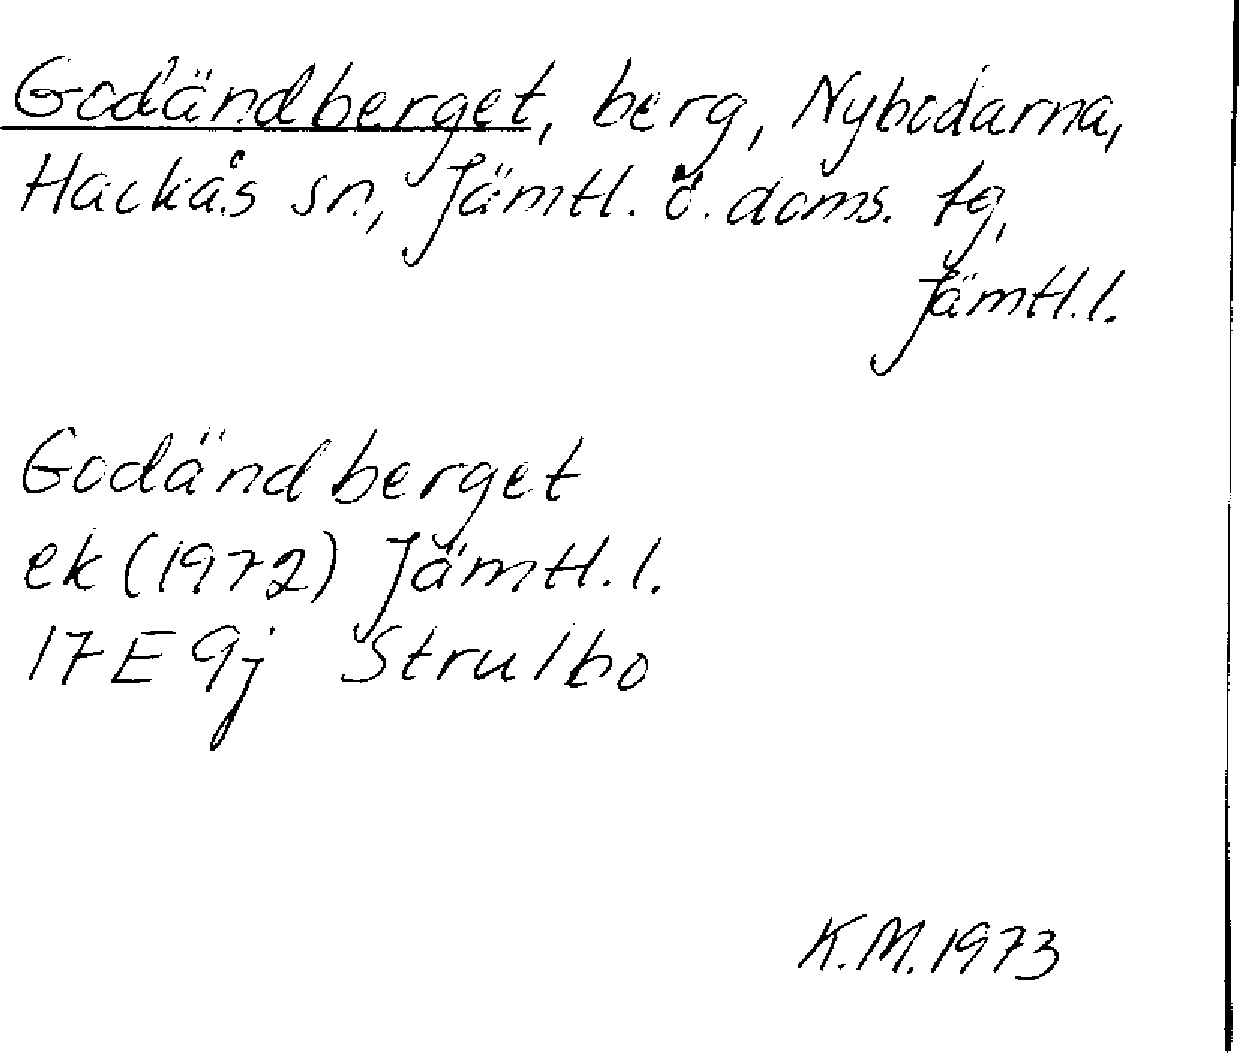 Godändberget, berg, Nybodarna,
Hackås sn, Jämtl. ö. doms. tg,
Jämtl. l.
Godändberget
ek (1972) Jämtl. l.
17E 9j Strulbo
K.M. 1973